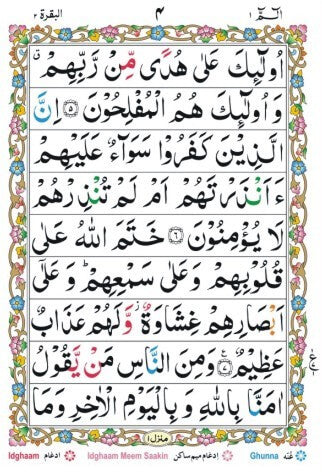 الٓمّٓ ١ ٤ البقرة ٢
اُولٰٓئِكَ عَلٰى هُدًى مِّنْ رَّبِّهِمْ ۙ
وَاُولٰٓئِكَ هُمُ الْمُفْلِحُوْنَ ﴿۵﴾ اِنَّ
الَّذِيْنَ كَفَرُوْا سَوَآءٌ عَلَيْهِمْ
ءَاَنْذَرْتَهُمْ اَمْ لَمْ تُنْذِرْهُمْ
لَا يُؤْمِنُوْنَ ﴿۶﴾ خَتَمَ اللّٰهُ عَلٰى
قُلُوْبِهِمْ وَعَلٰى سَمْعِهِمْ ؕ وَعَلٰٓى
اَبْصَارِهِمْ غِشَاوَةٌ ز وَّلَهُمْ عَذَابٌ
عَظِيْمٌ ﴿۷﴾ ع وَمِنَ النَّاسِ مَنْ يَّقُوْلُ
اٰمَنَّا بِاللّٰهِ وَبِالْيَوْمِ الْاٰخِرِ وَمَا
منزل ١
Idghaam ادغام Idghaam Meem Saakin ادغام میم ساکن Ghunna غنہ